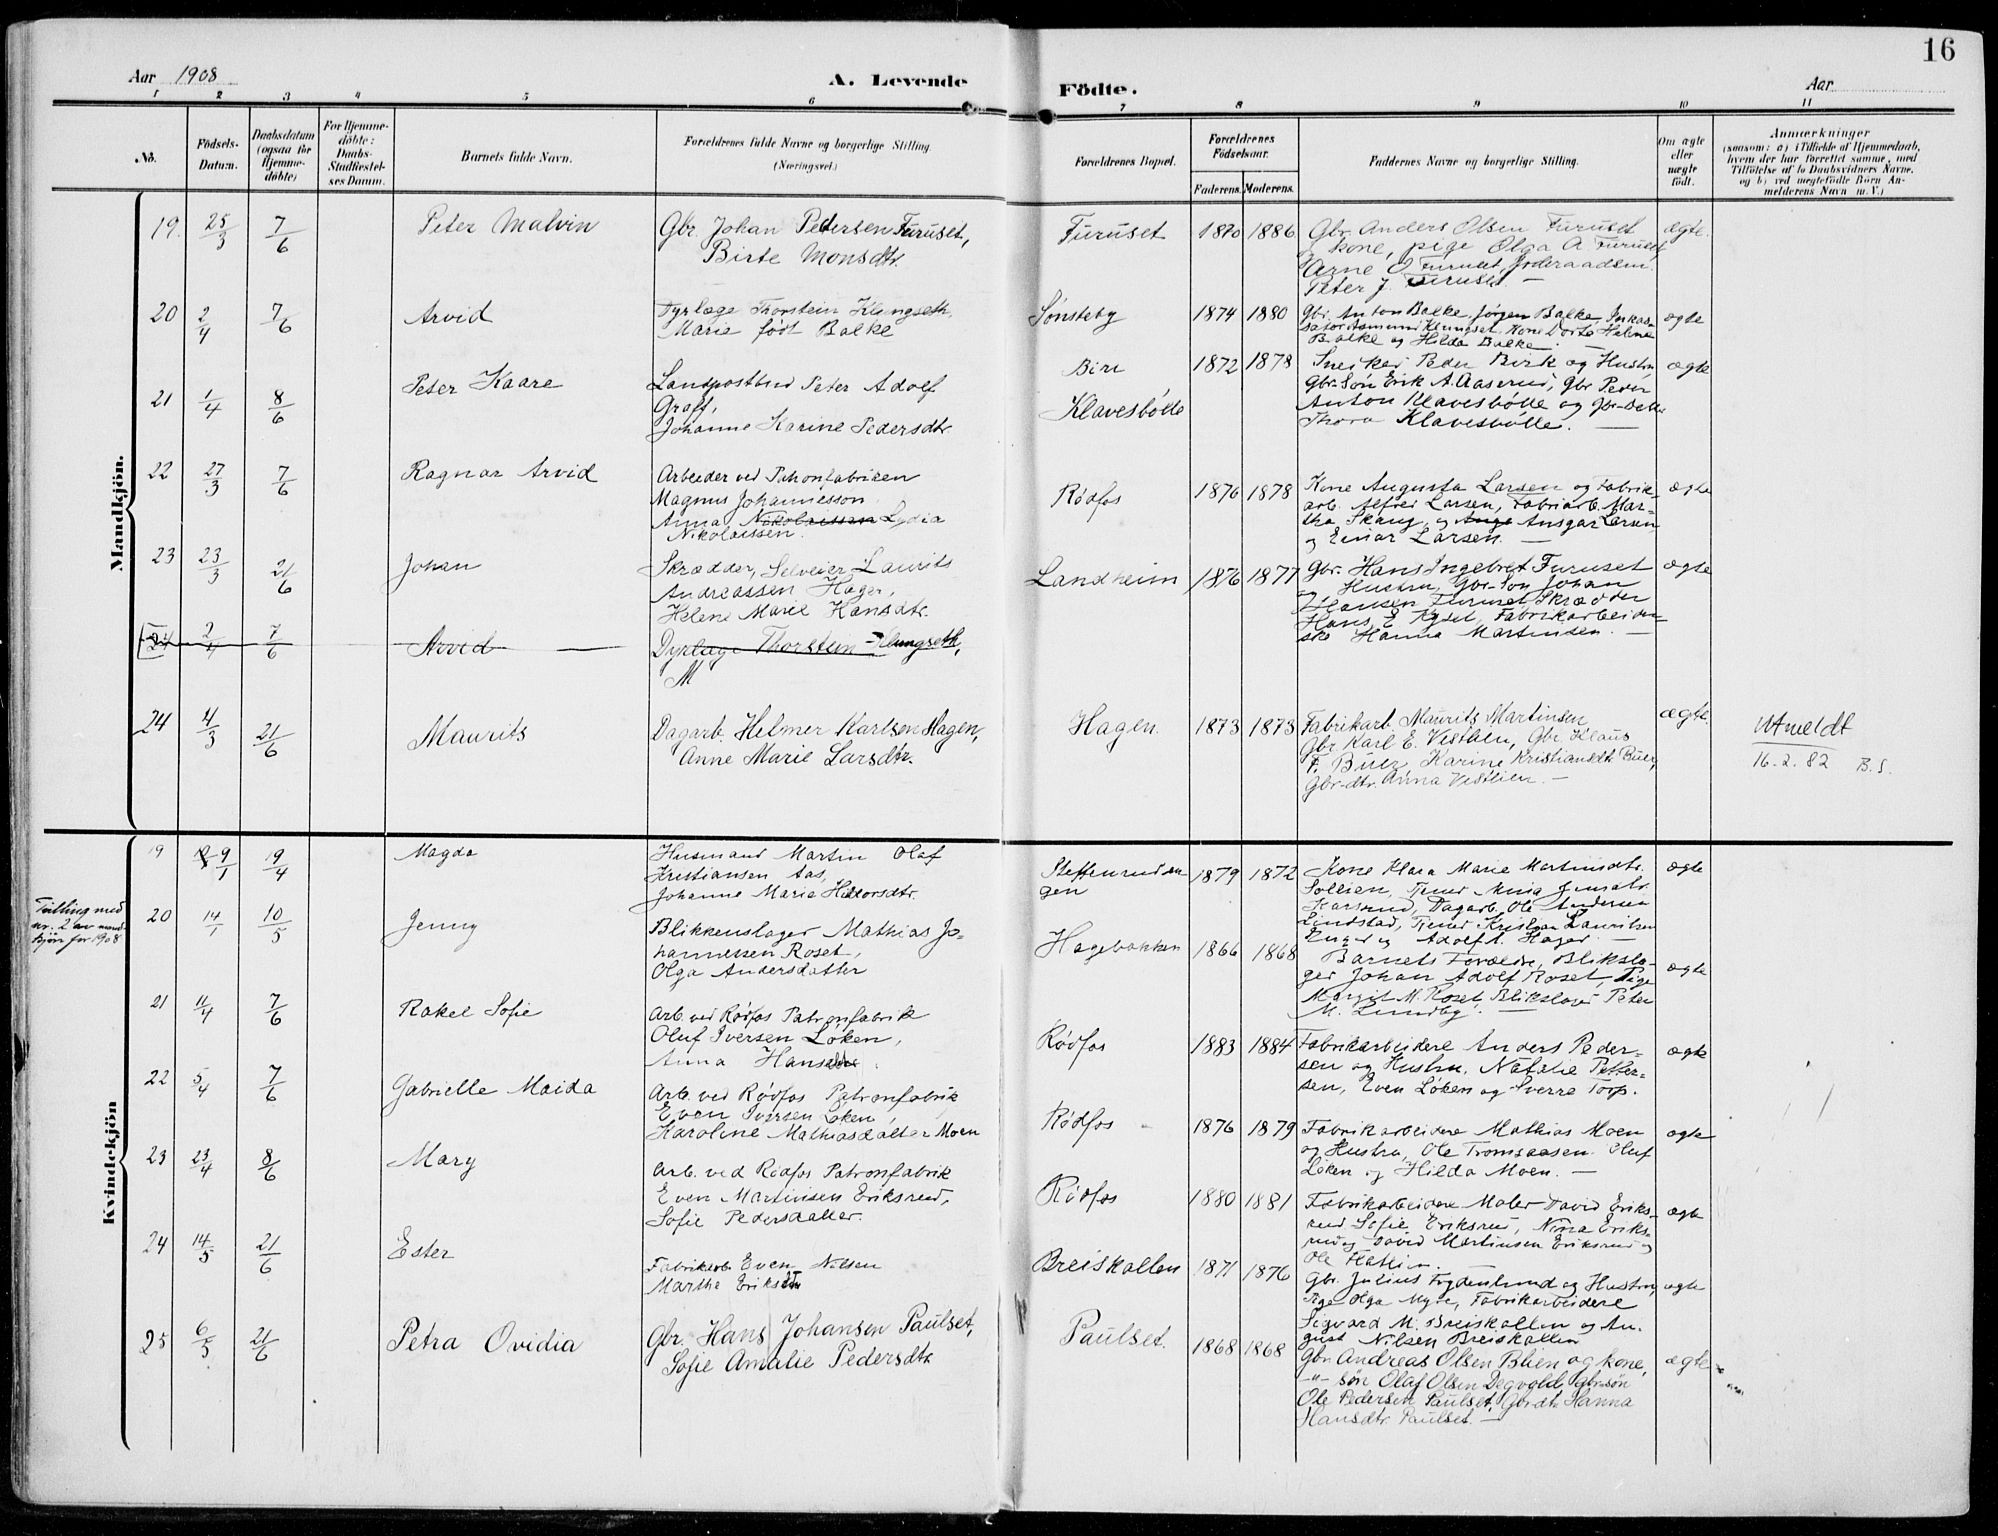 16
Aar 1908
A. Levende
Födte.
Aar
1 2 3 4 5 6 7 8 9 10 11
No.
Födsels-
Datum.
Daabsdatum
(ogsaa for
Hjemme-
döbte)
For Hjemme-
döbte:
Daabs-
Stadfæstel-
ses Datum.
Barnets fulde Navn.
Forældrenes fulde Navne og borgerlige Stilling.
(Næringsvei.)
Forældrenes Bopæl.
Forældrenes
Födselsaar.
Faderens. Moderens.
Faddernes Navne og borgerlige Stilling.
Om ægte
eller
uægte
født.
Anmærkninger
(saasom: a) i Tilfælde af Hjemmedaab,
hvem der har forrettet samme, med
Tilföielse af to Daabsvidners Navne,
og b) ved uægtefödte Börn An-
melderens Navn m. V.)
Mandkjön.
19. 25/3 7/6 Peter Malvin
Gbr. Johan Pedersen Furuset,
Birte Monsdtr.
Furuset 1870 1886
Gbr. Anders Olsen Furuset
og kone, pige Olga A Furuset,
Arne O Furuset,
Peter J. Furuset. —
ægte.
20 2/4 7/6 Arvid
Dyrlæge Thorstein Klungseth,
Marie født Balke
Sønsteby 1874 1880
Gbr. Anton Balke, Jørgen Balke, Inkas-
sator Asmund Klungset, Kone Dorte Helene
Balke og Hilda Balke. —
ægte
21 1/4 8/6 Peter Kaare
Landpostbud Peter Adolf
Graff,
Johanne Karine Pedersdtr.
Biri
Klavesbølle
1872 1878
Sneiker Peder Birk og Hustru
Gbr. Søn Erik A. Aaserud, Gbr Peder
Anton Klavesbølle og Gbr-Datter
Thora Klavesbølle. —
ægte
22 27/3 7/6 Ragnar Arvid
Arbeider ved Patronfabriken
Magnus Johannesson
Anna Nikolaissen Lydia
Nikolaissen.
Rødfos 1876 1878
Kone Augusta Larsen og Fabrik-
arb. Alfred Larsen, Fabriarb. Mar-
tha Skaug, og Ansgar Larsen
og Einar Larsen. —
ægte
23 23/3 21/6 Johan
Skrædder, Selveier Laurits
Andreassen Hager,
Helene Marie Hansdtr.
Landheim 1876 1877
Gbr. Hans Ingebret Furuset
og Hustru, Gbr-Søn Johan
Hansen Furuset, Skrædder
Hans E. Fyset, Fabrikarbeider-
ske Hanna Martinsen. —
ægte
24 2/4 7/6 Arvid
Dyrlæge Thorstein Klungseth,
M
24 4/3 21/6 Maurits
Dagarb. Helmer Karlsen Hagen,
Anne Marie Larsdtr.
Hagen. 1873 1873
Fabrikarb. Maurits Martinsen
Gbr Karl E. Vestlien, Gbr. Klaus
F. Buer Karine Kristiansdtr Buer,
Gbr-dtr. Anna Vestlien. —
ægte.
Utmeldt
16.2.82 B.S.
Kvindekjön
19 9/1 19/4 Magda
Husmand Martin Olaf
Kristiansen Aas,
Johanne Marie Haldorsdtr.
Steffenrudein-
gen
1879 1872
Kone Klara Marie Martinsdtr.
Sollien, Tjener
Karsrud, Dagarb. Ole Andersen
Lindstad, Tjener Kristian Lauritsen
Enger og Adolf A. Hager. —
ægte
Tvilling med
nr. 2 av mand-
kjön for 1908
20 14/1 10/5 Jenny
Blikkenslager Mathias Jo-
hannessen Roset,
Olga Andersdatter
Hagebakken 1866 1868
Barnets Forældre, Blikslå-
ger Johan Adolf Roset, Pige
Margit M. Roset, Blikslager Peter
M. Lundby. —
ægte
21 11/4 7/6 Rakel Sofie
Arb. ved Rødfos Patronfabrik
Oluf Iversen Løken,
Anna Hansdtr.
Rødfos 1883 1884
Fabrikarbeidere Anders Peder-
sen og Hustru, Natalie Petter-
sen, Even Løken og Sverre Torp.
ægte
22 5/4 7/6 Gabrielle Maida
Arb. ved Rødfos Patronfabrik
Even Iversen Løken,
Karoline Mathiasdatter Moen
Rødfos 1876 1879
Fabrikarbeidere Mathias Moen
og Hustru, Ole Tromsaasen Oluf
Løken og Hilda Moen. —
ægte
23 23/4 8/6 Mary
Arb. ved Rødfos Patronfabrik
Even Martinsen Eriksrud,
Sofie Pedersdatter.
Rødfos 1880 1881
Fabrikarbeidere Maler David Eriks-
rud Sofie Eriksrud, Nina Eriks-
rud og David Martinsen Eriksrud og
Ole Flatlien. —
ægte
24 14/5 21/6 Ester
Fabrikarb. Even Nilsen
Marthe Eriksdtr
Breiskallen 1871 1876
Gbr. Julius Frydenlund og Hustru,
Pige Olga Myre, Fabrikarbeidere
Sigvard M. Breiskallen og Au-
gust Nilsen Breiskallen
ægte
25 6/5 21/6 Petra Ovidia
Gbr. Hans Johansen Paulset,
Sofie Amalie Pedersdtr
Paulset. 1868 1868
Gbr. Andreas Olsen Blien og kone,
-"- søn Olaf Olsen Degvold, gbr.søn
Ole Pedersen Paulset, Gbrdtr Hanna
Hansdtr. Paulset. —
ægte